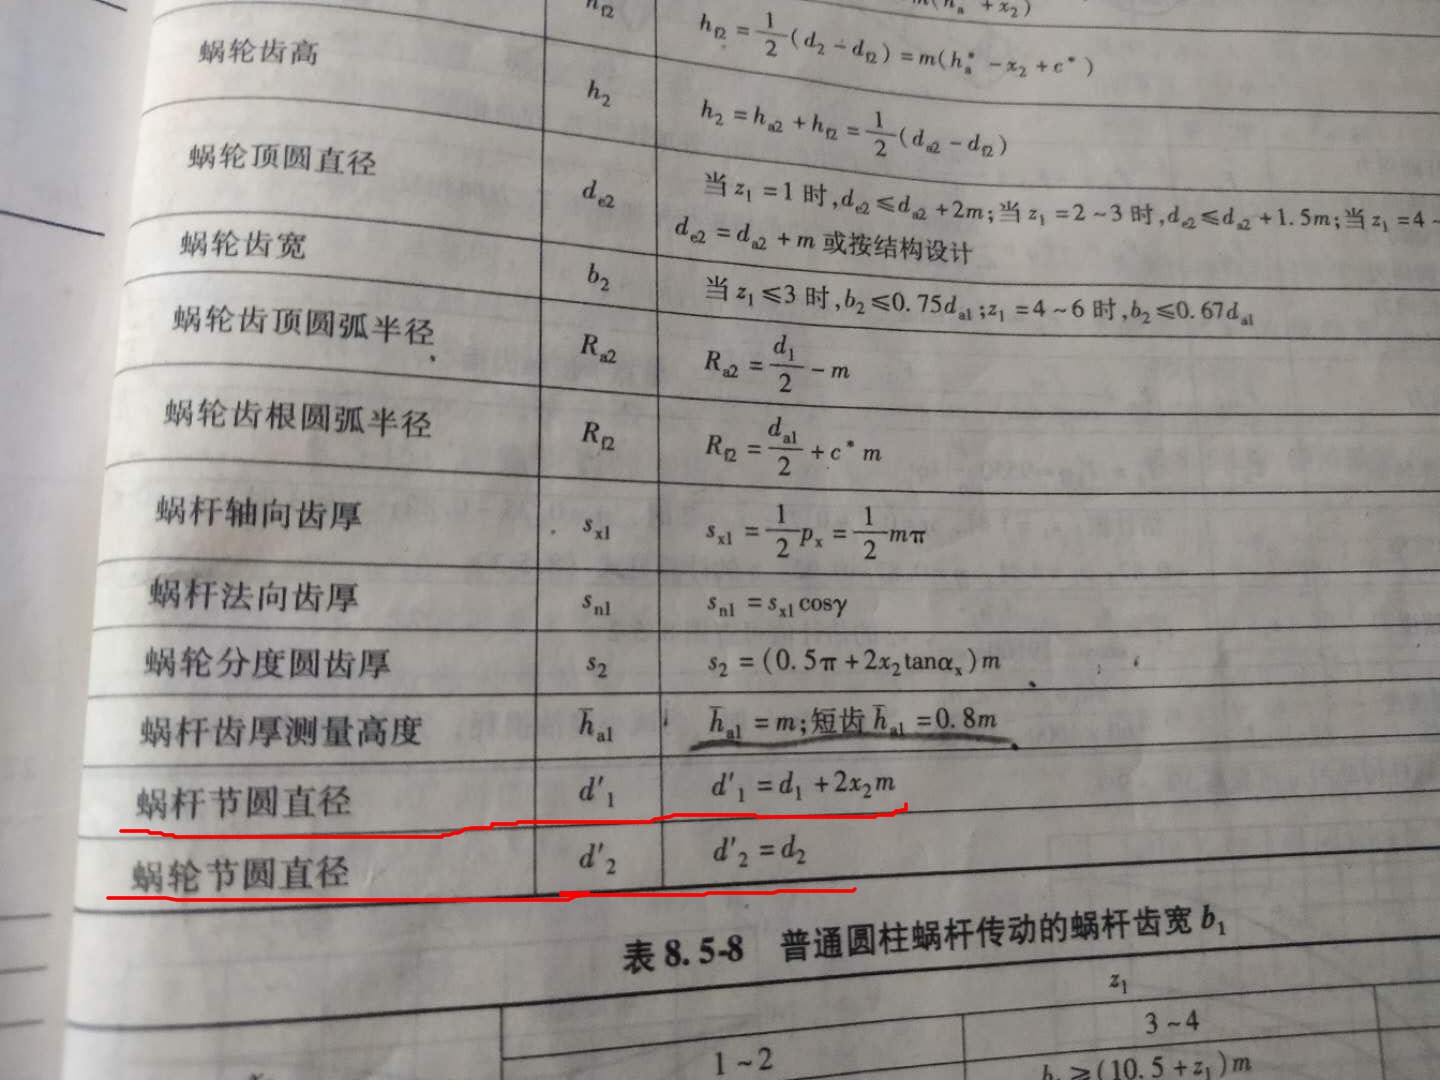 h_f2 = 1/2 (d_2 - d_f2) = m(h_a^* - x_2 + c^*)
蜗轮齿高 h_2 h_2 = h_a2 + h_f2 = 1/2 (d_a2 - d_f2)
蜗轮顶圆直径 d_e2 当 z_1 = 1 时,d_e2 ≤ d_a2 + 2m;当 z_1 = 2 ~ 3 时,d_e2 ≤ d_a2 + 1.5m;当 z_1 = 4 ~
d_e2 = d_a2 + m 或按结构设计
蜗轮齿宽 b_2 当 z_1 ≤ 3 时,b_2 ≤ 0.75d_a1;z_1 = 4 ~ 6 时,b_2 ≤ 0.67d_a1
蜗轮齿顶圆弧半径 R_a2 R_a2 = d_1/2 - m
蜗轮齿根圆弧半径 R_f2 R_f2 = d_a1/2 + c^* m
蜗杆轴向齿厚 s_x1 s_x1 = 1/2 p_x = 1/2 mπ
蜗杆法向齿厚 s_n1 s_n1 = s_x1 cosγ
蜗轮分度圆齿厚 s_2 s_2 = (0.5π + 2x_2 tanα_x)m
蜗杆齿厚测量高度 h̄_a1 h̄_a1 = m;短齿 h̄_a1 = 0.8m
蜗杆节圆直径 d'_1 d'_1 = d_1 + 2x_2 m
蜗轮节圆直径 d'_2 d'_2 = d_2
表 8.5-8 普通圆柱蜗杆传动的蜗杆齿宽 b_1
z_1
1 ~ 2 3 ~ 4
≥ (10.5 + z_1)m